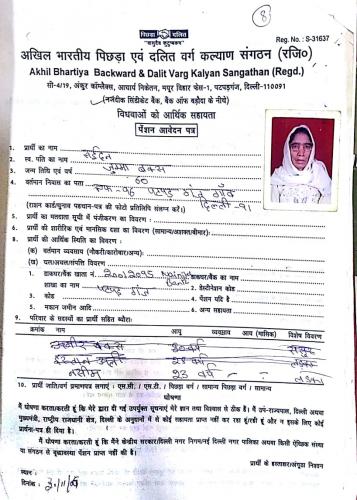 8
पिछड़ा दलित
"वसुधैव कुटुम्बकम"
Reg. No. : S-31637
अखिल भारतीय पिछड़ा एवं दलित वर्ग कल्याण संगठन (रजि०)
Akhil Bhartiya Backward & Dalit Varg Kalyan Sangathan (Regd.)
सी-4/19, अंकुर कॉम्प्लैक्स, आचार्य निकेतन, मयूर विहार फेस-1, पटपड़गंज, दिल्ली-110091
(नजदीक सिंडीकेट बैंक, बैंक ऑफ बड़ौदा के नीचे)
विधवाओं को आर्थिक सहायता
पेंशन आवेदन पत्र
1. प्रार्थी का नाम
2. स्व. पति का नाम जुम्मा बक्स
3. जन्म तिथि एवं वर्ष 60
4. वर्तमान निवास का पता
दिल्ली-91
(राशन कार्ड/चुनाव पहचान-पत्र की फोटो प्रतिलिपि संलग्न करें।)
5. प्रार्थी का मतदाता सूची में पंजीकरण का विवरण :
6. प्रार्थी की शारीरिक एवं मानसिक दशा का विवरण (सामान्य/अशक्त/बीमार):
8. प्रार्थी की आर्थिक स्थिति का विवरण :
(क) वर्तमान व्यवसाय (नौकरी/कारोबार/अन्य):
(ख) चल/अचल/संपत्ति विवरण
1. डाकघर/बैंक खाता नं. डाकघर/बैंक का नाम
शाखा का नाम 2. डेस्टीनेशन कोड
3. कोड 4. पेंशन यदि है
5. मकान जमीन आदि 6. अन्य सहायता
9. परिवार के सदस्यों का प्रार्थी सहित ब्यौरा:
क्रमांक नाम आयु व्यवसाय आय (मासिक) विशेष विवरण
बक्स
वर्ष
नसीम 23 वर्ष
10. प्रार्थी जाति/वर्ग प्रमाणपत्र लगाएं । एस.सी. / एस.टी. । पिछड़ा वर्ग । सामान्य पिछड़ा वर्ग । सामान्य
घोषणा
मैं घोषणा करता/करती हूँ कि मेरे द्वारा दी गई उपर्युक्त सूचनाएं मेरे ज्ञान तथा विश्वास से ठीक हैं। मैं उप-राज्यपाल, दिल्ली अथवा
मुख्यमंत्री, राष्ट्रीय राजधानी क्षेत्र, दिल्ली के अनुदानों से कोई सहायता प्राप्त नहीं कर रहा हूँ/रही हूँ और न इसके लिए कोई
प्रार्थना-पत्र ही दिया है।
मैं घोषणा करता/करती हूँ कि मैंने केन्द्रीय सरकार/दिल्ली नगर निगम/नई दिल्ली नगर पालिका अथवा किसी ऐच्छिक संस्था
या संगठन से वृद्धावस्था पेंशन प्राप्त नहीं की है।
प्रार्थी के हस्ताक्षर/अंगूठा निशान
स्थान :
दिनांक :